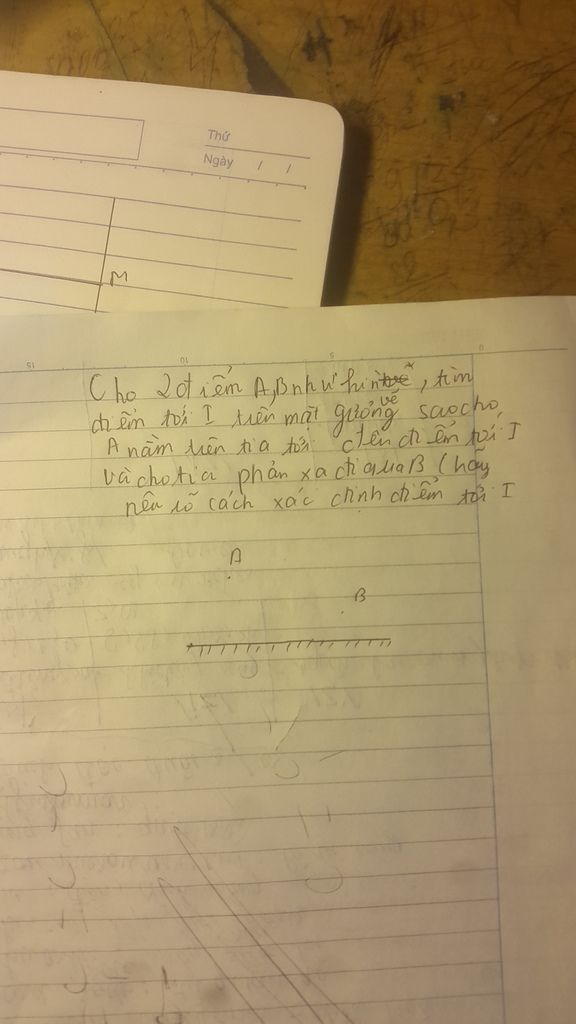 Thứ
Ngày / /
M
15 10 5 0
Cho 2 điểm A,B như hình vẽ, tìm
điểm tới I trên mặt gương sao cho
A nằm trên tia tới đến điểm tới I
và cho tia phản xạ đi qua B (hãy
nêu rõ cách xác định điểm tới I
A
B